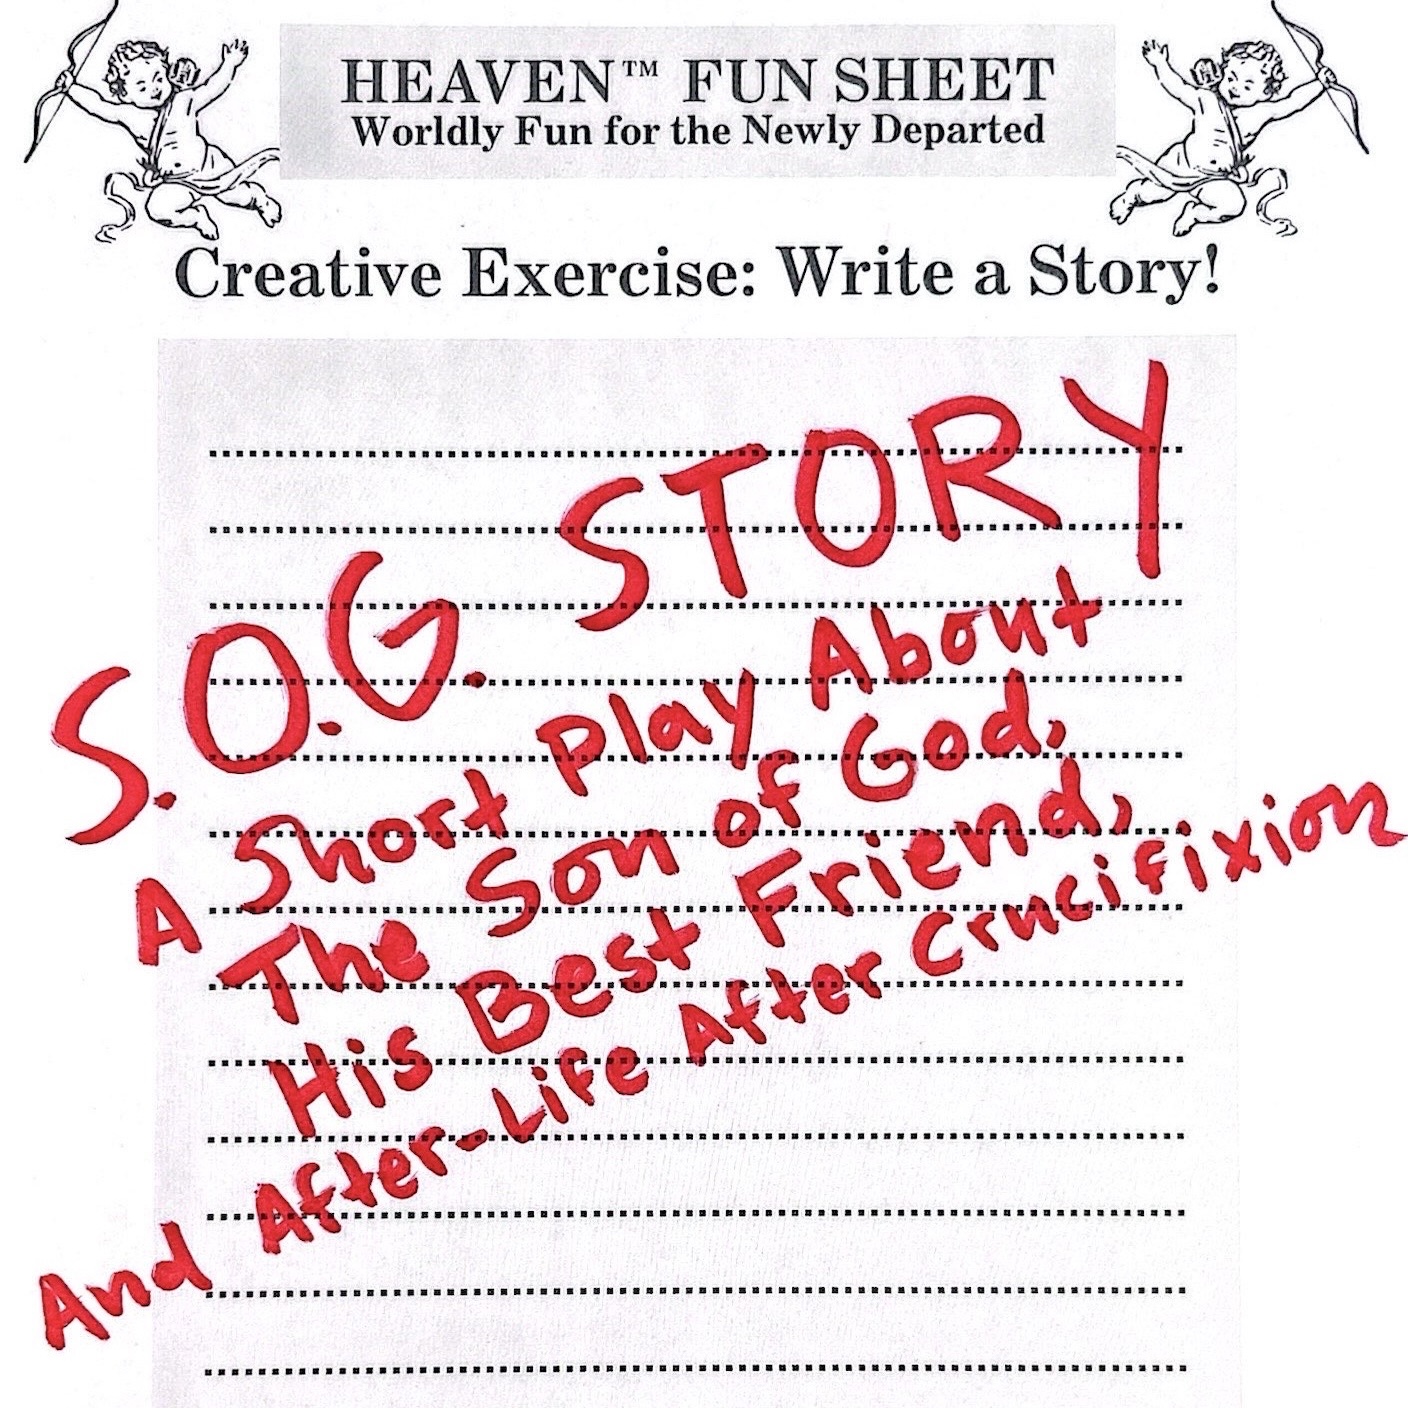 HEAVEN™ FUN SHEET
Worldly Fun for the Newly Departed
Creative Exercise: Write a Story!
S.O.G. STORY
A Short Play About
The Son of God,
His Best Friend,
And After-Life After Crucifixion